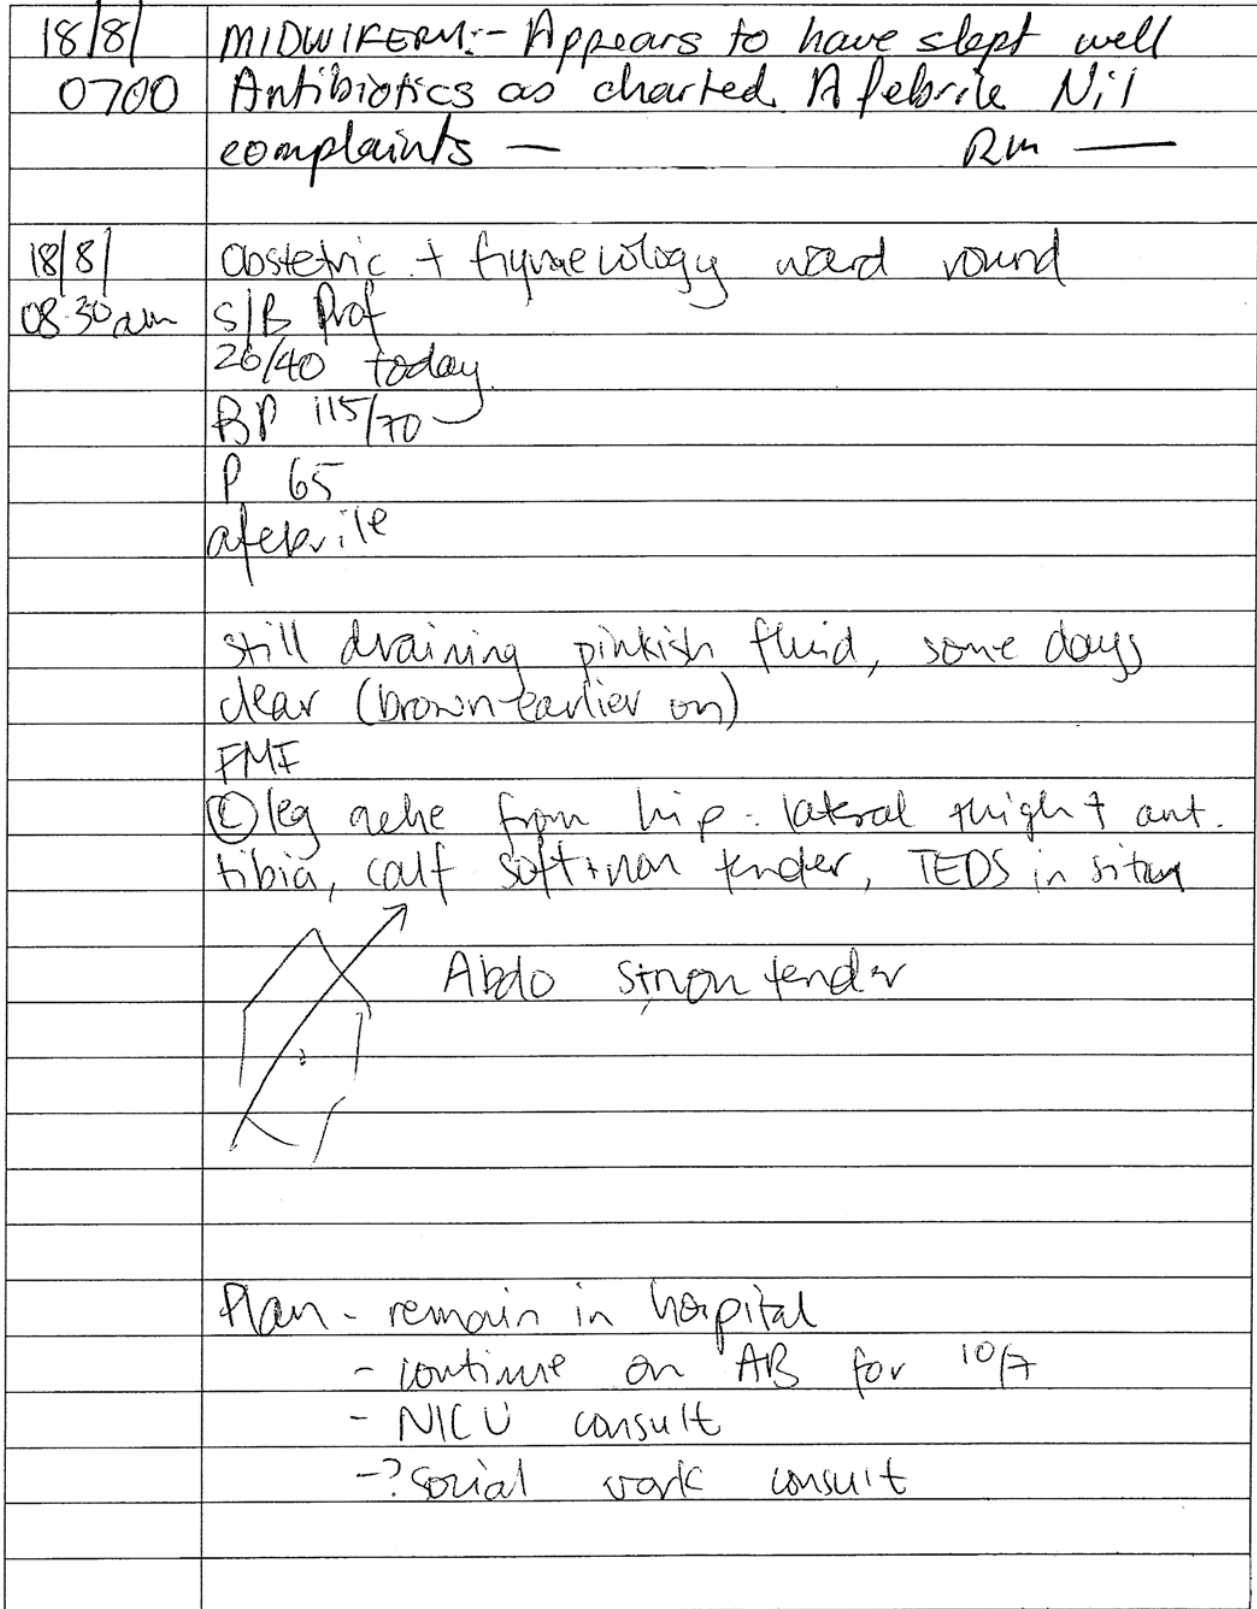 18/8/ MIDWIFERY:- Appears to have slept well
0700 Antibiotics as charted. Afebrile Nil
complaints — RM —
18/8/ Obstetric + Gynaecology ward round
08.30am S/B Prof
26/40 today.
BP 115/70
P 65
afebrile
still draining pinkish fluid, some days
clear (brown earlier on)
FMF
Ⓛ leg ache from hip - lateral thigh + ant.
tibia, calf soft + non tender, TEDS in situ
Abdo S, non tender
Plan - remain in hospital
- continue on AB for 10/7
- NICU consult
- ? social work consult